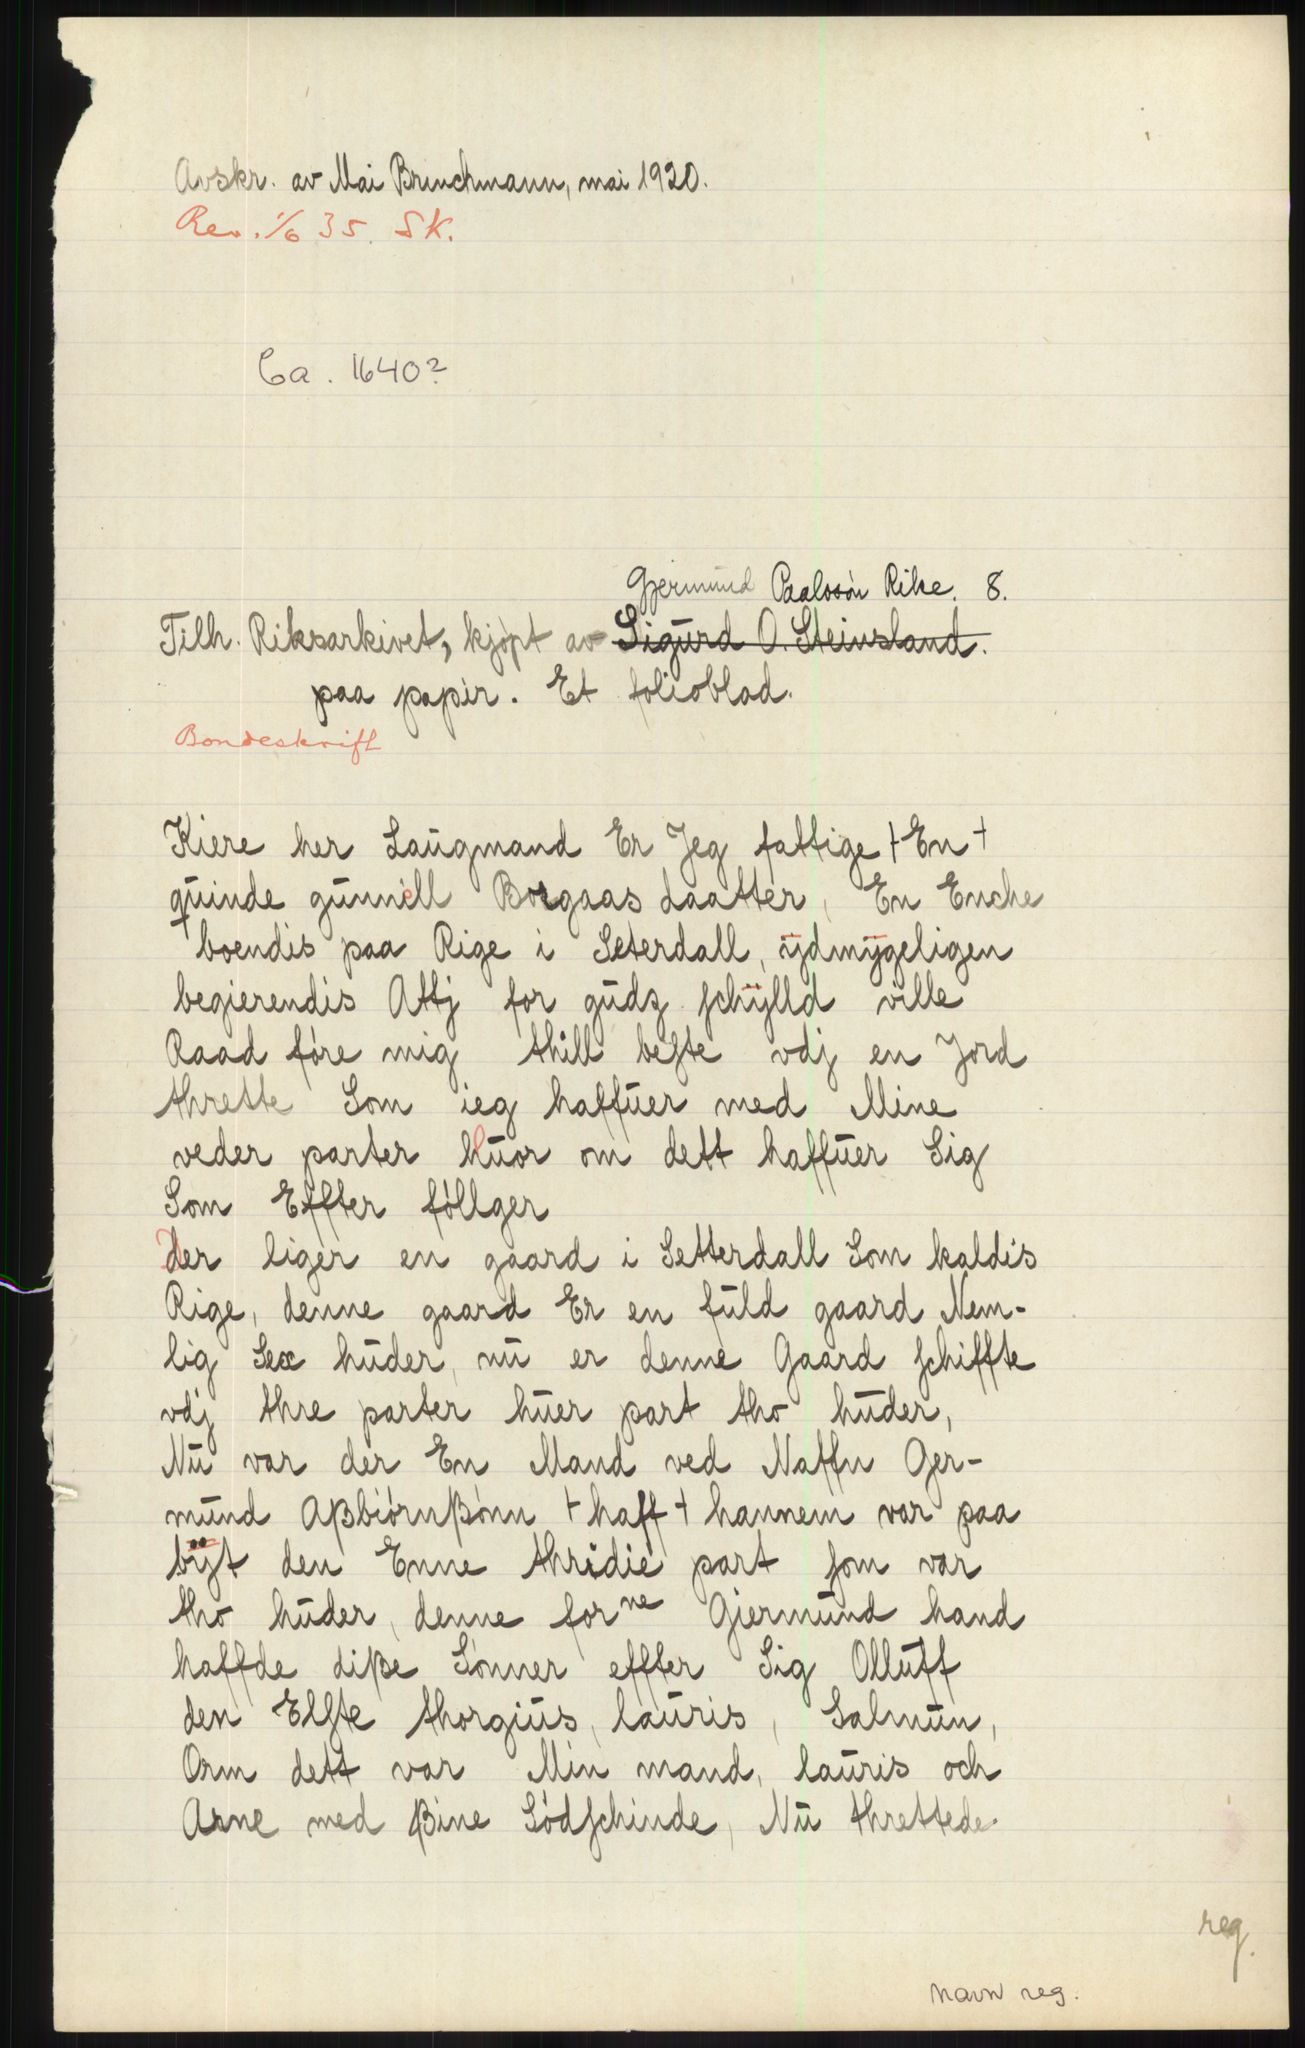 Avskr. av Mai Brinchmann, mai 1920.
Rev. 1/6 35. SK.
Ca. 1640?
Gjermund Paalssøn Rike. 8.
Tilh. Riksarkivet, kjøpt av Sigurd O. Steinsland.
paa papir. Et folioblad.
Bondeskrift
Kiere her Laugmand Er Jeg fattige + En +
quinde gunnell Borgaas daatter, En Encke
boendis paa Rige i Seterdall, ÿdmÿgeligen
begierendis Attj for gudz schÿlld ville
Raad føre mig thill beste vdj en Jord
thrette Som ieg haffuer med Mine
veder parter huor om dett haffuer Sig
Som Effter føllger
der liger en gaard i Setterdall Som kaldis
Rige, denne gaard Er en fuld gaard Nem-
lig Sex huder, nu er denne Gaard schiffte
vdj thre parter huer part tho huder,
Nu var der En Mand ved Naffn Ger-
mund Aßbiørnßønn + haff + hannem var paa
bÿt den Enne thridie part som var
tho huder, denne forne Gjermund hand
haffde diße Sønner effter Sig Olluff
den Elste thorgius, lauris, Salmun,
Orm dett var Min mand, lauris och
Arne med ßine Sødschinde, Nu threttede
reg.
navn reg.